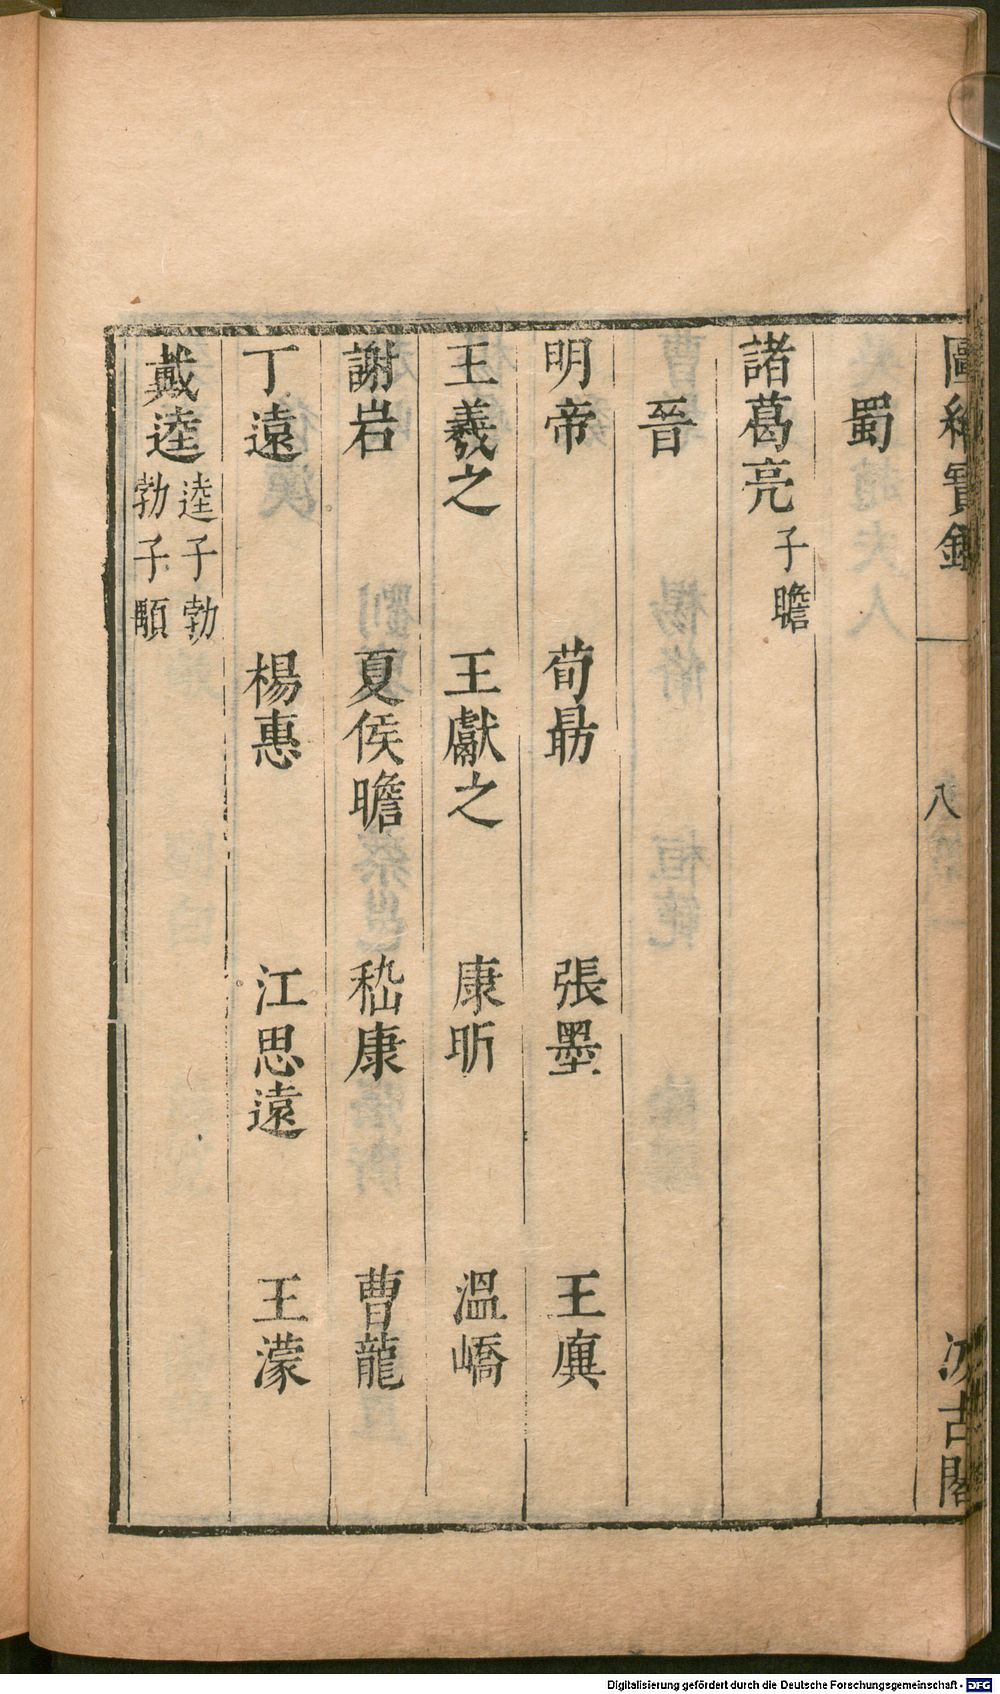 圖繪寶鑑 八 汲古閣
蜀
諸葛亮 子瞻
晉
明帝 荀勗 張墨 王廙
王羲之 王獻之 康昕 溫嶠
謝岩 夏侯瞻 嵇康 曹龍
丁遠 楊惠 江思遠 王濛
戴逵 逵子勃 勃子顒
Digitalisierung gefördert durch die Deutsche Forschungsgemeinschaft - DFG